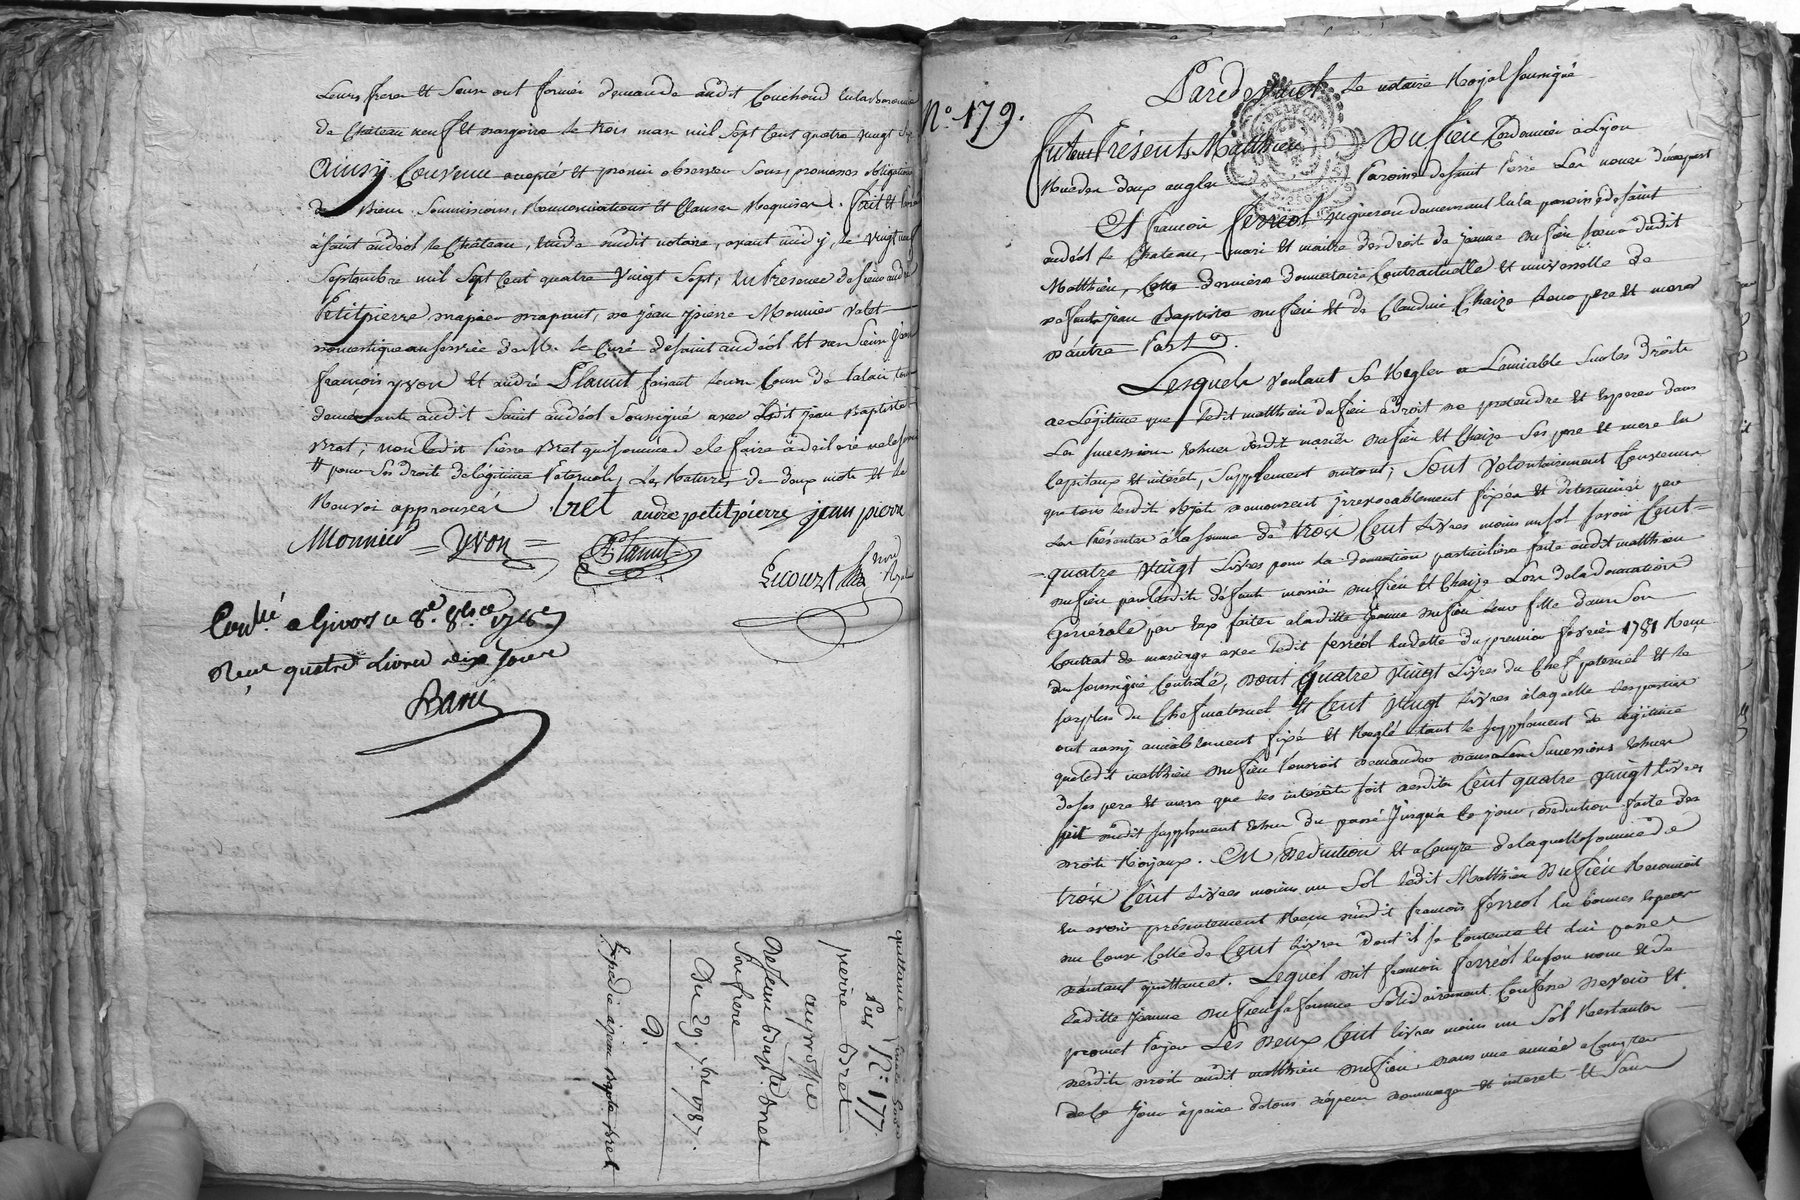 Leurs frere et soeur ont formée demande audit Couchoud en la baronnie
de Château neuf et dargoire le trois mars mil sept cent quatre vingt
Ainsÿ Convenu accepté et promis observer sous promesses obligations
de Biens, Soumissions, Renonciations et Clauses Requises. fait et
a saint andéol le Château, Etude dudit notaire, avant midy, le vingt neuf
Septembre mil sept Cent quatre vingt sept; En Presence de sieur andré
Petitpierre, de jean pierre Monnier valet
domestique au service de M. le Curé de saint andéol et des sieurs jean
françois yvon et andré Plamet faisant leurs Cour de Palais
demeurants audit saint andéol soussigné avec Ledit jean Baptiste
Bret; non Ledit Pierre Bret qui sommé de le faire a déclaré ne le savoir
# pour ses droits de légitime Paternels, Les Ratures de deux mots et le
Renvoi approuvés bret andré petitpierre jean pierre
Monnier = Yvon = Plamet
not Royal
Conllé a Givors ce 8e 8bre 178
Reçu quatre Livres dix sous
Barn
quittance
Par N° 177.
pierre Bret
au proffit
de jean Bap.te Bret
Son frere
Du 29. 7bre 1787.
9.
Expedié a jean Bapte bret
N° 179.
Pardevant le notaire Royal soussigné
furent Présents Matthieu Dufieu Cordonnier à Lyon
Rue des deux angles Paroisse de saint Pierre Les nonas d'une part
Et francois ferreol vigneron demeurant en la paroisse de saint
andéol le Chateau, mari et maitre des droits de jeanne Dufieu soeur dudit
Matthieu, Cette derniere donnataire Contractuelle et universelle de
défunts jean Baptiste Dufieu et de Claudine Chaize leurs pere et mere
d'autre Part.
Lesquels voulant se Regler a L'amiable sur les droits
de Légitime que ledit matthieu dufieu a droit de pretendre et esperer dans
Les succession echues desdit mariés Dufieu et Chaize ses pere et mere en
Capitaux et intérêt, supplement autant; sont volontairement Convenus
que tous lesdit droits demeurent irrevocablement fixés et determinés par
Les Présentes à la somme de trois Cent Livres moins un sol savoir Cent
quatre vingt Livres pour la donnation particuliere faite audit matthieu
Dufieu par lesdits défunts mariés Dufieu et Chaize Lors de la donnation
Générale par Eux faites a laditte jeanne Dufieu leur fille dans son
Contrat de mariage avec ledit ferreol En datte du premier fevrier 1781 Reçu
du soussigné Controlé, dont quatre vingt Livres du Chef paternel et le
surplus du Chef maternel Et Cent vingt Livres à laquelle lesparties
ont aussy amiablement fixé et Reglé tant le supplement de légitime
que ledit matthieu Dufieu Pourroit demander dans Les Successions echues
de ses pere et mere que les intérêts soit desdits Cent quatre vingt Livres
soit dudit supplement echus du passé Jusqu'a Ce jour, deduction faite des
droits Royaux. En Deduction et a Compte de laquelle somme de
trois Cent Livres moins un Sol ledit Matthieu Dufieu Reconnoit
En avoir présentement Reçu dudit francois ferreol En bonnes Especes
au Cours Celle de Cent Livres dont il se Contente et Lui passe
d'autant quittance. Lequel dit francois ferreol en son nom et de
Laditte jeanne Dufieu sa femme solidairement Confesse devoir et
promet Payer Les Deux Cent livres moins un Sol Restantes
desdits droits audit matthieu Dufieu, dans une année a Compter
de Ce Jour à peine de tous dépens dommages et interet Et sans